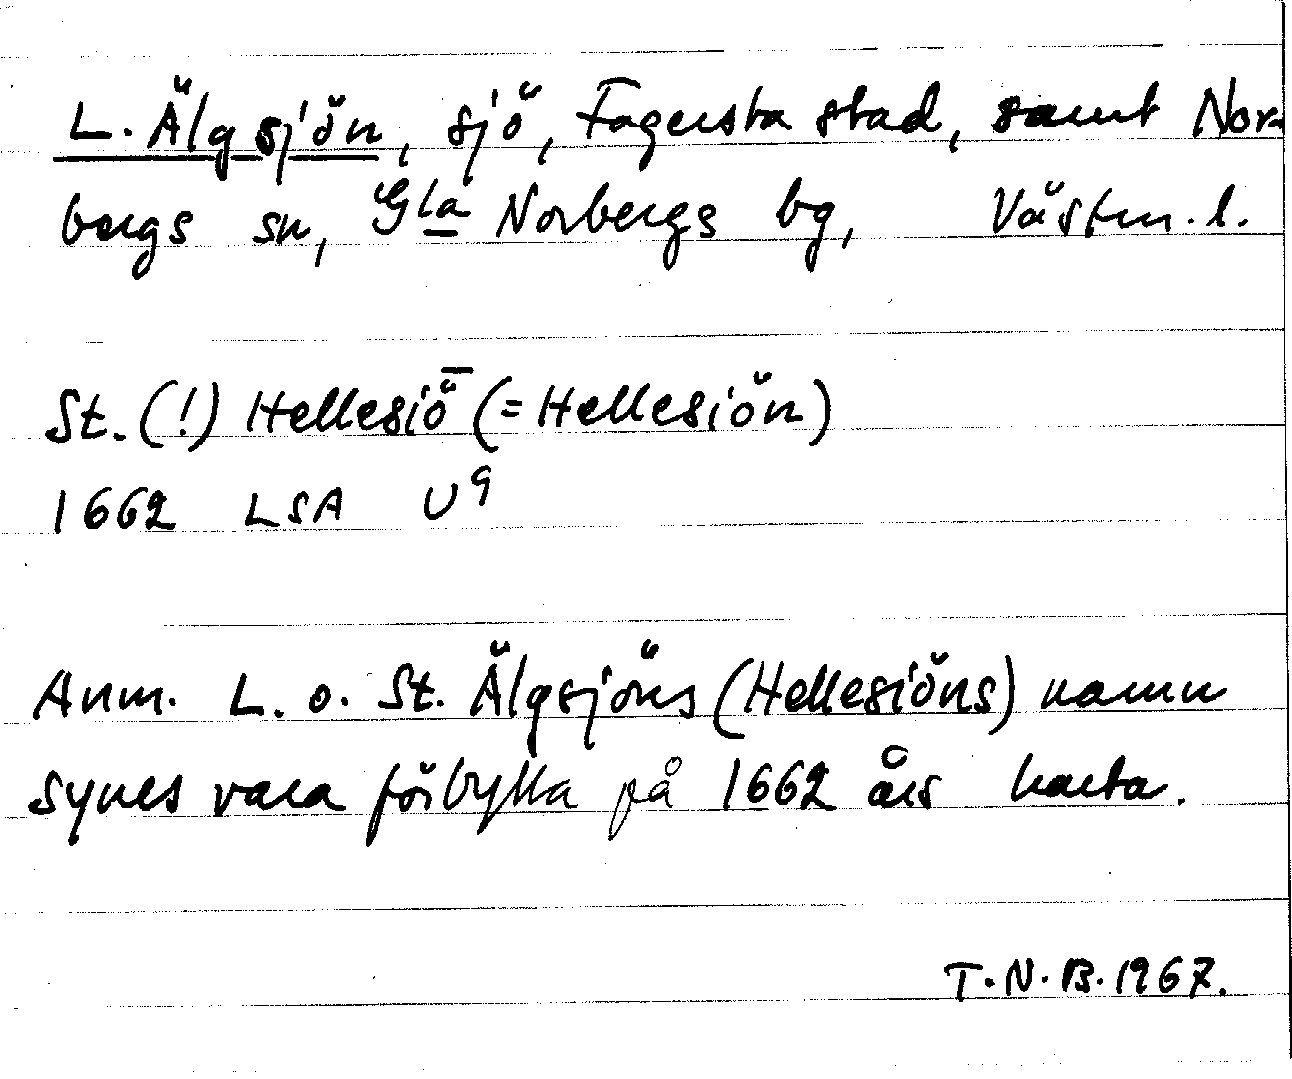 L. Älgsjön, sjö, Fagersta stad, samt Nor-
bergs sn, Gla Norbergs bg, Västm. l.
St. (!) Hellesiȫ (= Hellesiön)
1662 LSA U9
Anm. L. o. St. Älgsjöns (Hellesiöns) namn
synes vara förbytta på 1662 års karta.
T.N.B. 1967.